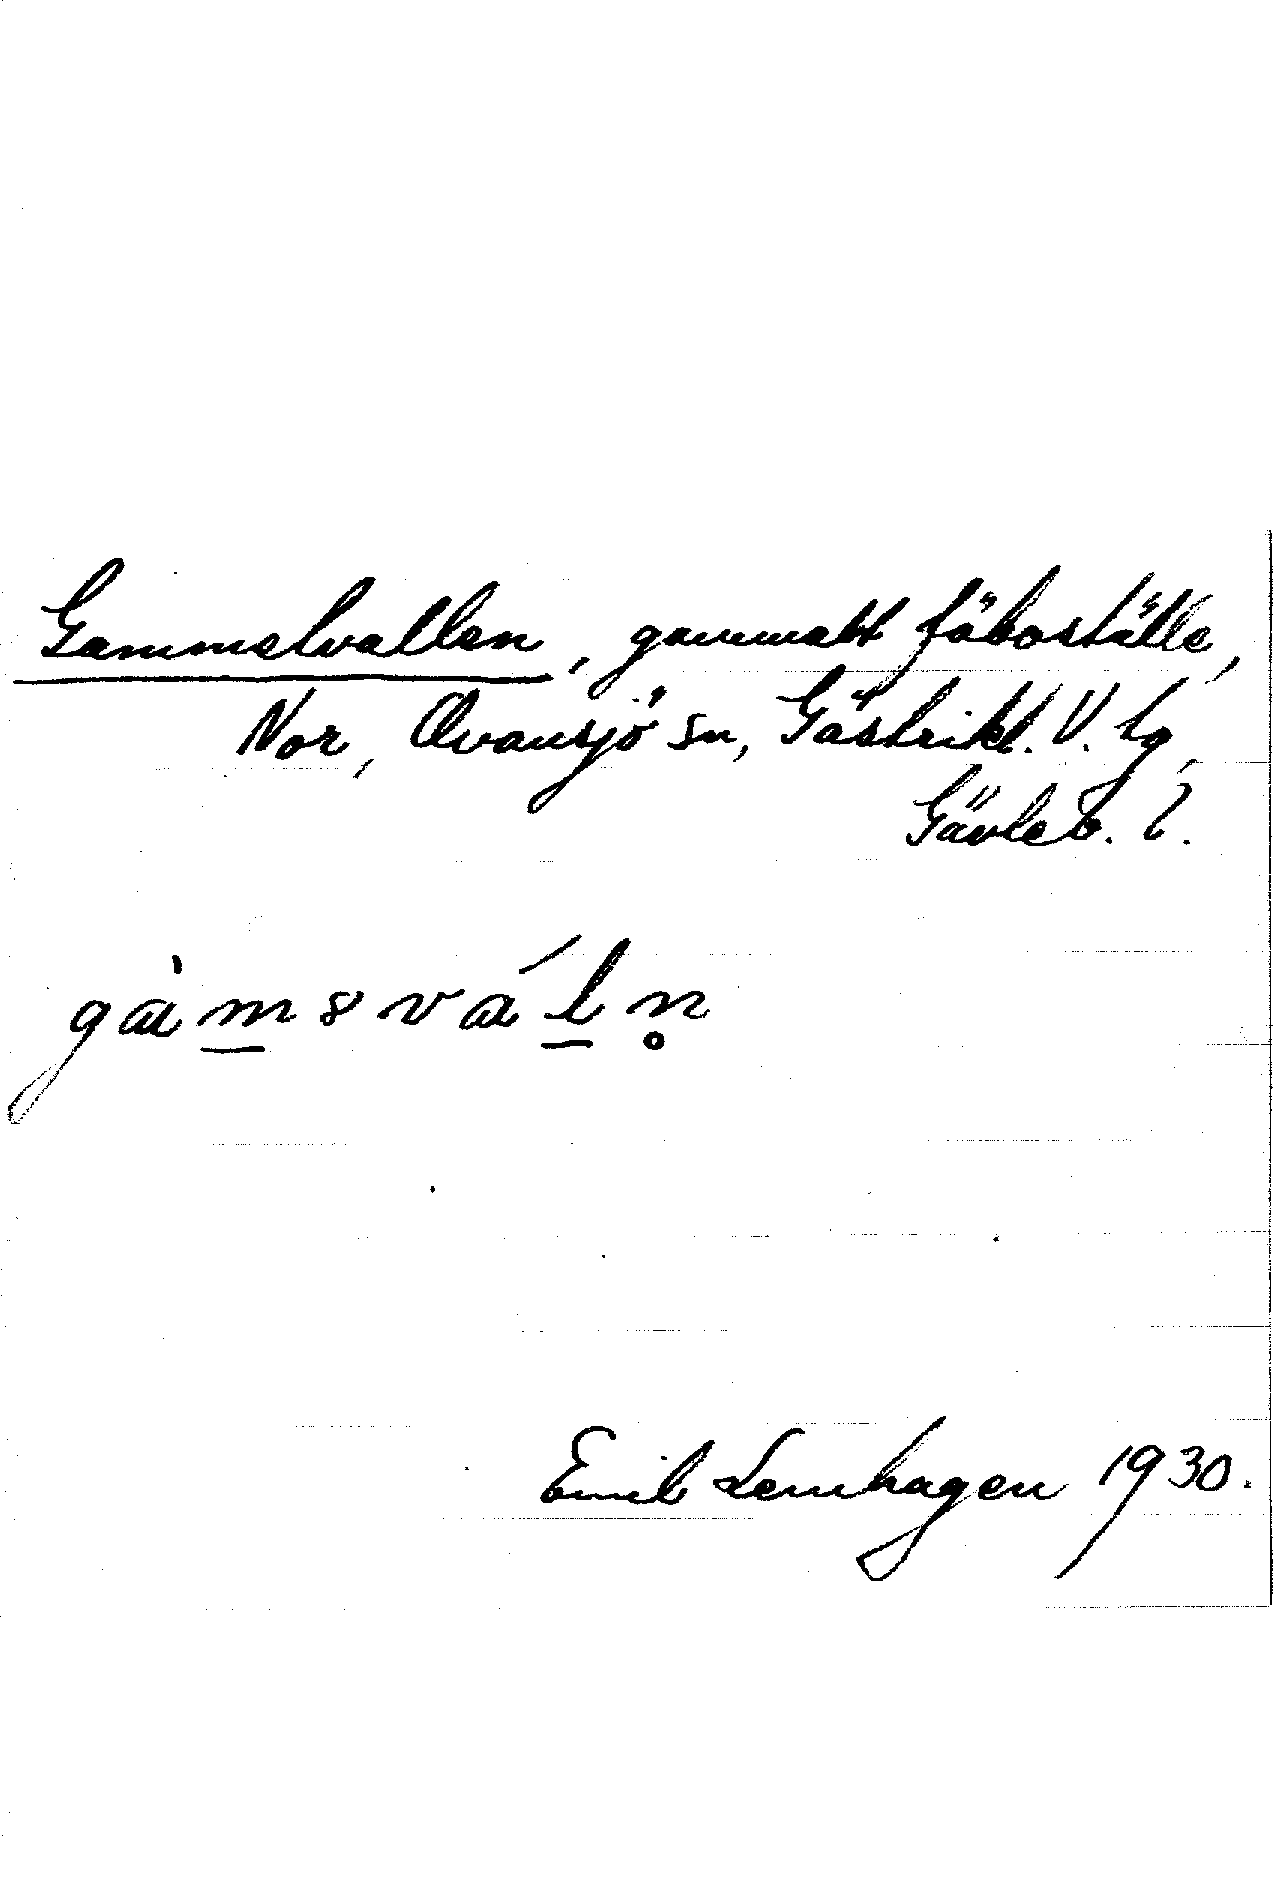 Gammelvallen, gammalt fäboställe,
Nor, Ovansjö sn, Gästrikl. V. tg,
Gävleb. l.
Emil Lernhagen 1930.